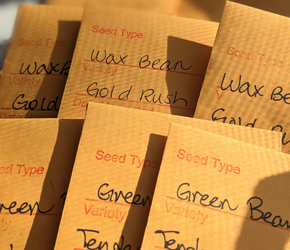 Wax B
Variety
Gold
Seed Type
Wax Bean
Variety
Gold Rush
Seed Type
Wax Be
Gold Ru
Type
Green
Seed Type
Green
Variety
Tende
Seed Type
Green Bean
Variety
Tend